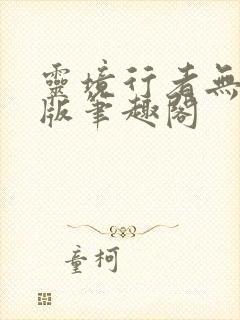 靈境行者無
版筆趣閣
童柯